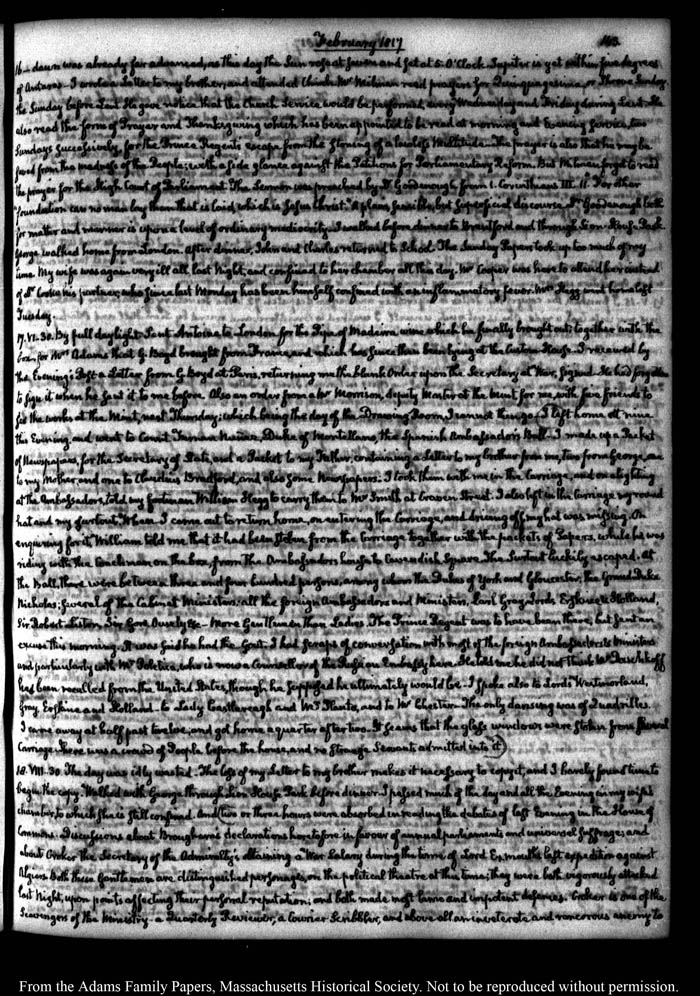 February 1817
143.
16— dawn was already far advanced, as this day the Sun rose at seven and set at 5. O'Clock. Jupiter is yet within five degrees
of Antares. I wrote a Letter to my brother, and attended Church. Mr Milman read prayers for Quinquagesima, or Shrove Sunday
the Sunday before Lent. He gave notice that the Church Service would be performed every Wednesday and Friday during Lent. He
also read the form of Prayer and Thanksgiving which has been appointed to be read at morning and Evening Service, two
Sundays successively, for the Prince Regent's escape from the stoning of a lawless Multitude. The prayer is also that he may be
saved from the madness of the People; with a side glance against the Petitions for Parliamentary Reform. But Milman forgot to read
the prayer for the High Court of Parliament. The Sermon was preached by Dr Goodenough, from 1. Corinthians III. 11. "For other
foundation can no man lay than that is laid, which is Jesus Christ." A plain, sensible, but superficial discourse. Dr Goodenough both
for matter and manner is upon a level of ordinary mediocrity. I walked before dinner to Brentford and through Sion-House Park.
George walked home from London. After dinner, John and Charles returned to School. The Sunday Papers took up too much of my
time. My wife was again very ill all last Night, and confined to her chamber all this day. Mr Cooper was here to attend her instead
of Dr Cooke his partner; who since last Monday has been himself confined with an inflammatory fever. Mrs and has left
Tuesday.
17. VI. 30. By full daylight. Sent Antoine to London for the Pipe of Madeira wine which he finally brought out; together with the
box for Mrs Adams that G. Boyd brought from France, and which has since then been lying at the Custom-House. I received by
the Evening Post a Letter from G. Boyd at Paris, returning me the blank Order upon the Secretary at War, signed. He had forgotten
to sign it when he sent it to me before. Also an order from a Mr Morrison, deputy Master at the Mint, for me, with five friends to
see the works at the Mint, next Thursday; which being the day of the Drawing Room, I cannot then go. I left home at nine
this Evening, and went to Count Fernan Nuñez, Duke of Montellano, the Spanish Ambassador's Ball. I made up a Packet
of Newspapers, for the Secretary of State, and a Packet to my Father, containing a Letter to my brother from me, two from George, one
to my Mother, and one to Claudius Bradford, and also some Newspapers. I took them with me in the Carriage, and on alighting
at the Ambassadors, told my footman William to carry them to Mr Smith at Craven Street. I also left in the Carriage my round
hat and my surtout. When I came out to return home, on entering the Carriage, and driving off my hat was missing. On
enquiring for it, William told me that it had been stolen from the Carriage together with the packets of Papers, while he was
riding with the Coachman on the box, from the Ambassadors house to Cavendish Square. The Surtout luckily escaped. At
the Ball, there were between three and four hundred persons, among whom the Dukes of York and Gloucester; the Grand Duke
Nicholas; several of the Cabinet Ministers; all the foreign Ambassadors and Ministers, Earl Grey, Lords Erskine & Holland,
Sir Robert Liston, Sir Gore Ouseley &c— More Gentlemen than Ladies. The Prince Regent was to have been there, but sent an
excuse this morning. It was said he had the Gout. I had scraps of conversation with most of the foreign Ambassadors & Ministers
and particularly with Mr Poletica, who is now a Counsellor of the Russian Embassy here. He told me he did not think Mr Daschkoff
had been recalled from the United States, though he supposed he ultimately would be. I spoke also to Lords Westmorland,
Grey, Erskine and Holland. to Lady Castlereagh and Mrs and to Mr Chester. The only dancing was of Quadrilles.
I came away at half past twelve, and got home a quarter after two. It seems that the glass windows were stolen from several
Carriages. There was a crowd of People before the house, and no strange Servants admitted into it.
18. VIII. 30. The day was idly wasted. The loss of my Letter to my brother makes it necessary to copy it, and I barely found time to
begin the copy. Walked with George through Sion House Park before dinner. I passed much of the day and all the Evening in my wife's
chamber, to which she is still confined. And two or three hours were absorbed in reading the debates of last Evening in the House of
Commons. Discussions about Brougham's declarations heretofore in favour of annual parliaments and universal Suffrage; and
about Croker the Secretary of the Admiralty's obtaining a War Salary during the time of Lord Exmouth's last expedition against
Algiers. Both these Gentlemen are distinguished personages, on the political theatre at this time; they were both vigorously attacked
last Night, upon points affecting their personal reputation; and both made most lame and impotent defences. Croker is one of the
Scavengers of the Ministry— a Quarterly Reviewer, a Courier Scribbler, and above all an inveterate and rancorous enemy to
From the Adams Family Papers, Massachusetts Historical Society. Not to be reproduced without permission.